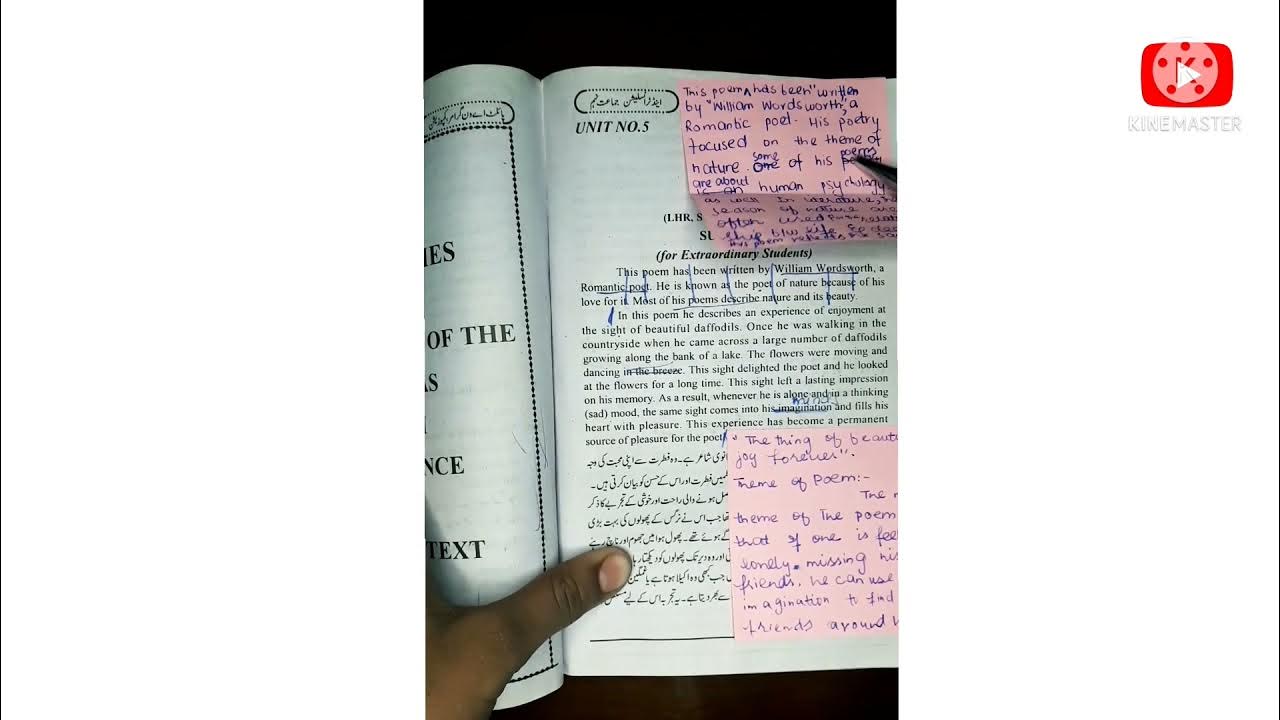 KINEMASTER
IES
OF THE
AS
NCE
TEXT
اینڈ ٹرانسلیشن جماعت نہم
UNIT NO.5
This poem has been "written
by "William Wordsworth", a
Romantic poet. His poetry
focused on the theme of
nature. some One of his poems
are about human psychology
as well In literature,
season of nature are
often used
(LHR, S
SU
(for Extraordinary Students)
This poem has been written by William Wordsworth, a
Romantic poet. He is known as the poet of nature because of his
love for it. Most of his poems describe nature and its beauty.
In this poem he describes an experience of enjoyment at
the sight of beautiful daffodils. Once he was walking in the
countryside when he came across a large number of daffodils
growing along the bank of a lake. The flowers were moving and
dancing in the breeze. This sight delighted the poet and he looked
at the flowers for a long time. This sight left a lasting impression
on his memory. As a result, whenever he is alone and in a thinking
mind
(sad) mood, the same sight comes into his imagination and fills his
heart with pleasure. This experience has become a permanent
source of pleasure for the poet.
" The thing of beaut
joy forever".
Theme of Poem:-
The
theme of The poem
that if one is fee
lonely. missing his
friends, he can use
imagination to find
friends around
شاعر ہے۔ وہ فطرت سے اپنی محبت کی وجہ
فطرت اور اس کے حسن کو بیان کرتی ہیں۔
ہونے والی راحت اور خوشی کے تجربے کا ذکر
جب اس نے نرگس کے پھولوں کی بہت بڑی
ہوئے تھے۔ پھول ہوا میں جھوم اور ناچ رہے
اور وہ دیر تک پھولوں کو دیکھتا
جب کبھی وہ اکیلا ہوتا ہے یا
سے بھر دیتا ہے۔ یہ تجربہ اس کے لیے